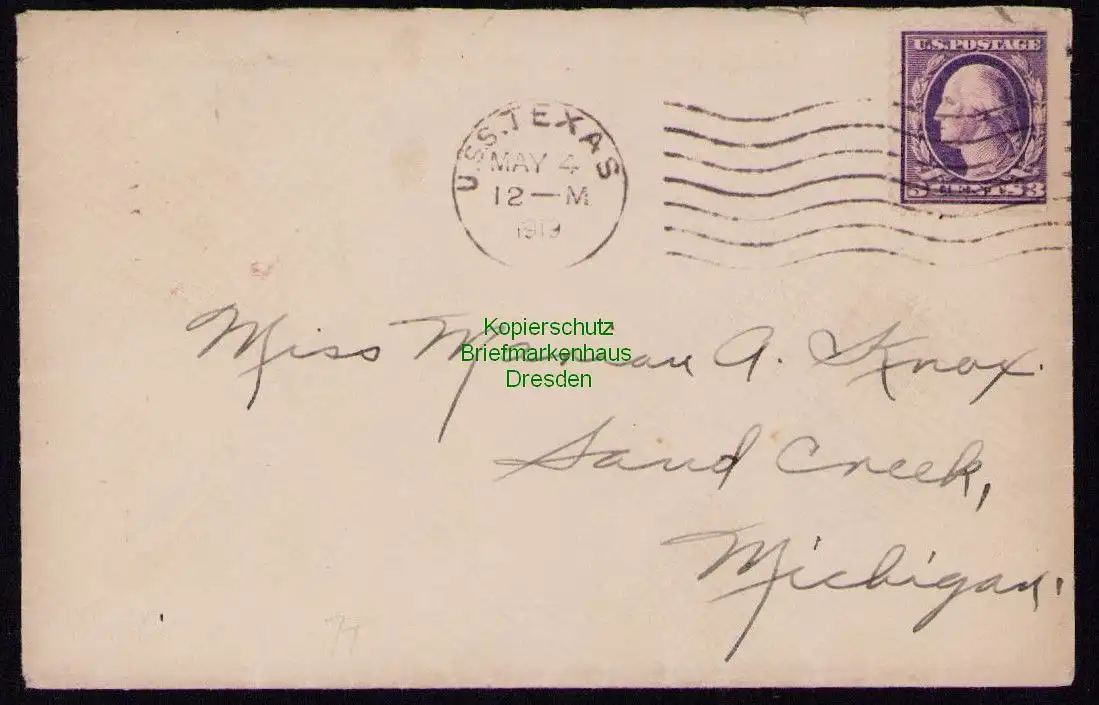 U.S.POSTAGE
CENTS 3
U.S.S. TEXAS
MAY 4
12—M
1919
Miss A. Knox.
Sand Creek,
Michigan.
Kopierschutz
Briefmarkenhaus
Dresden